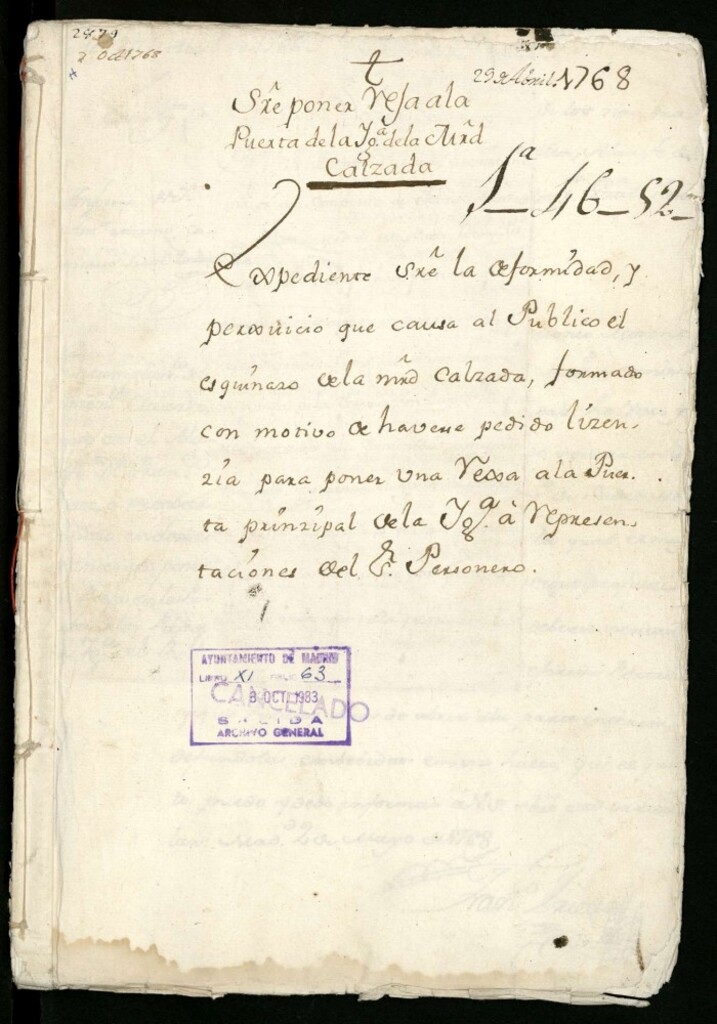 2 Oct 1768
†
29 de Abril 1768
Sre poner Rexa a la
Puerta de la Yga. de la Mrd
Calzada
1a_46_52_
Expediente Sre la deformidad, y
perxuicio que causa al Publico el
esquinazo de la mrd Calzada, formado
con motivo de haverse pedido lizen,,
zia para poner una Rexa a la Puer.
ta prinzipal de la Yga. à Represen,,
taciones del Sr. Personero.
AYUNTAMIENTO DE MADRID
LIBRO XI FOLIO 63
8 OCT. 1983
CANCELADO
SALIDA
ARCHIVO GENERAL